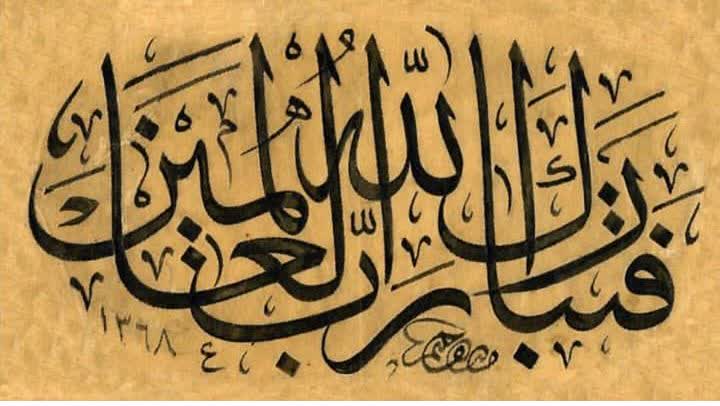 فتبارك الله رب العالمين
١٣٦٨